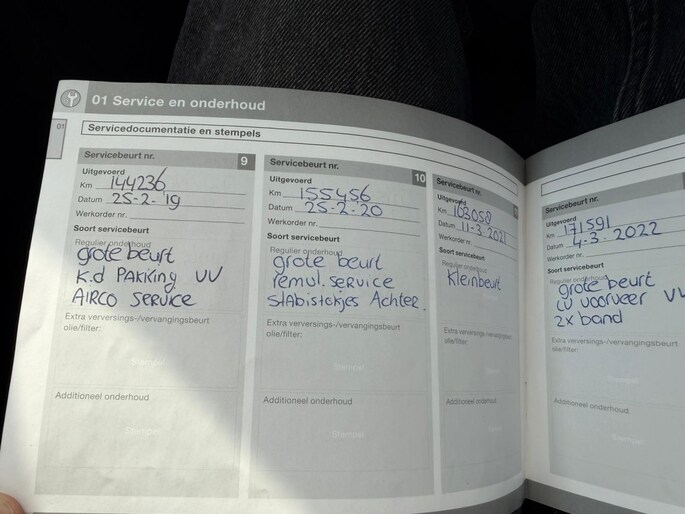 01 Service en onderhoud
01
Servicedocumentatie en stempels
Servicebeurt nr. 9
Uitgevoerd
Km 144236
Datum 25-2-'19
Werkorder nr.
Soort servicebeurt
Regulier onderhoud
grote beurt
k.d PAKKING VV
AIRCO SERVICE
Extra verversings-/vervangingsbeurt
olie/filter:
Additioneel onderhoud
Servicebeurt nr. 10
Uitgevoerd
Km 155456
Datum 25-2-20
Werkorder nr.
Soort servicebeurt
Regulier onderhoud
grote beurt
remul.service
stabistokjes Achter.
Extra verversings-/vervangingsbeurt
olie/filter:
Stempel
Additioneel onderhoud
Stempel
Servicebeurt nr.
Uitgevoerd
Km 163058
Datum 11-3-2021
Werkorder nr.
Soort servicebeurt
Regulier onderhoud
kleinbeurt
Extra verversings-/vervangingsbeurt
olie/filter:
Additioneel onderhoud
Servicebeurt nr.
Uitgevoerd
Km 171591
Datum 4-3-2022
Werkorder nr.
Soort servicebeurt
Regulier onderhoud
grote beurt
LV voorveer VV
2x band
Extra verversings-/vervangingsbeurt
olie/filter:
Additioneel onderhoud